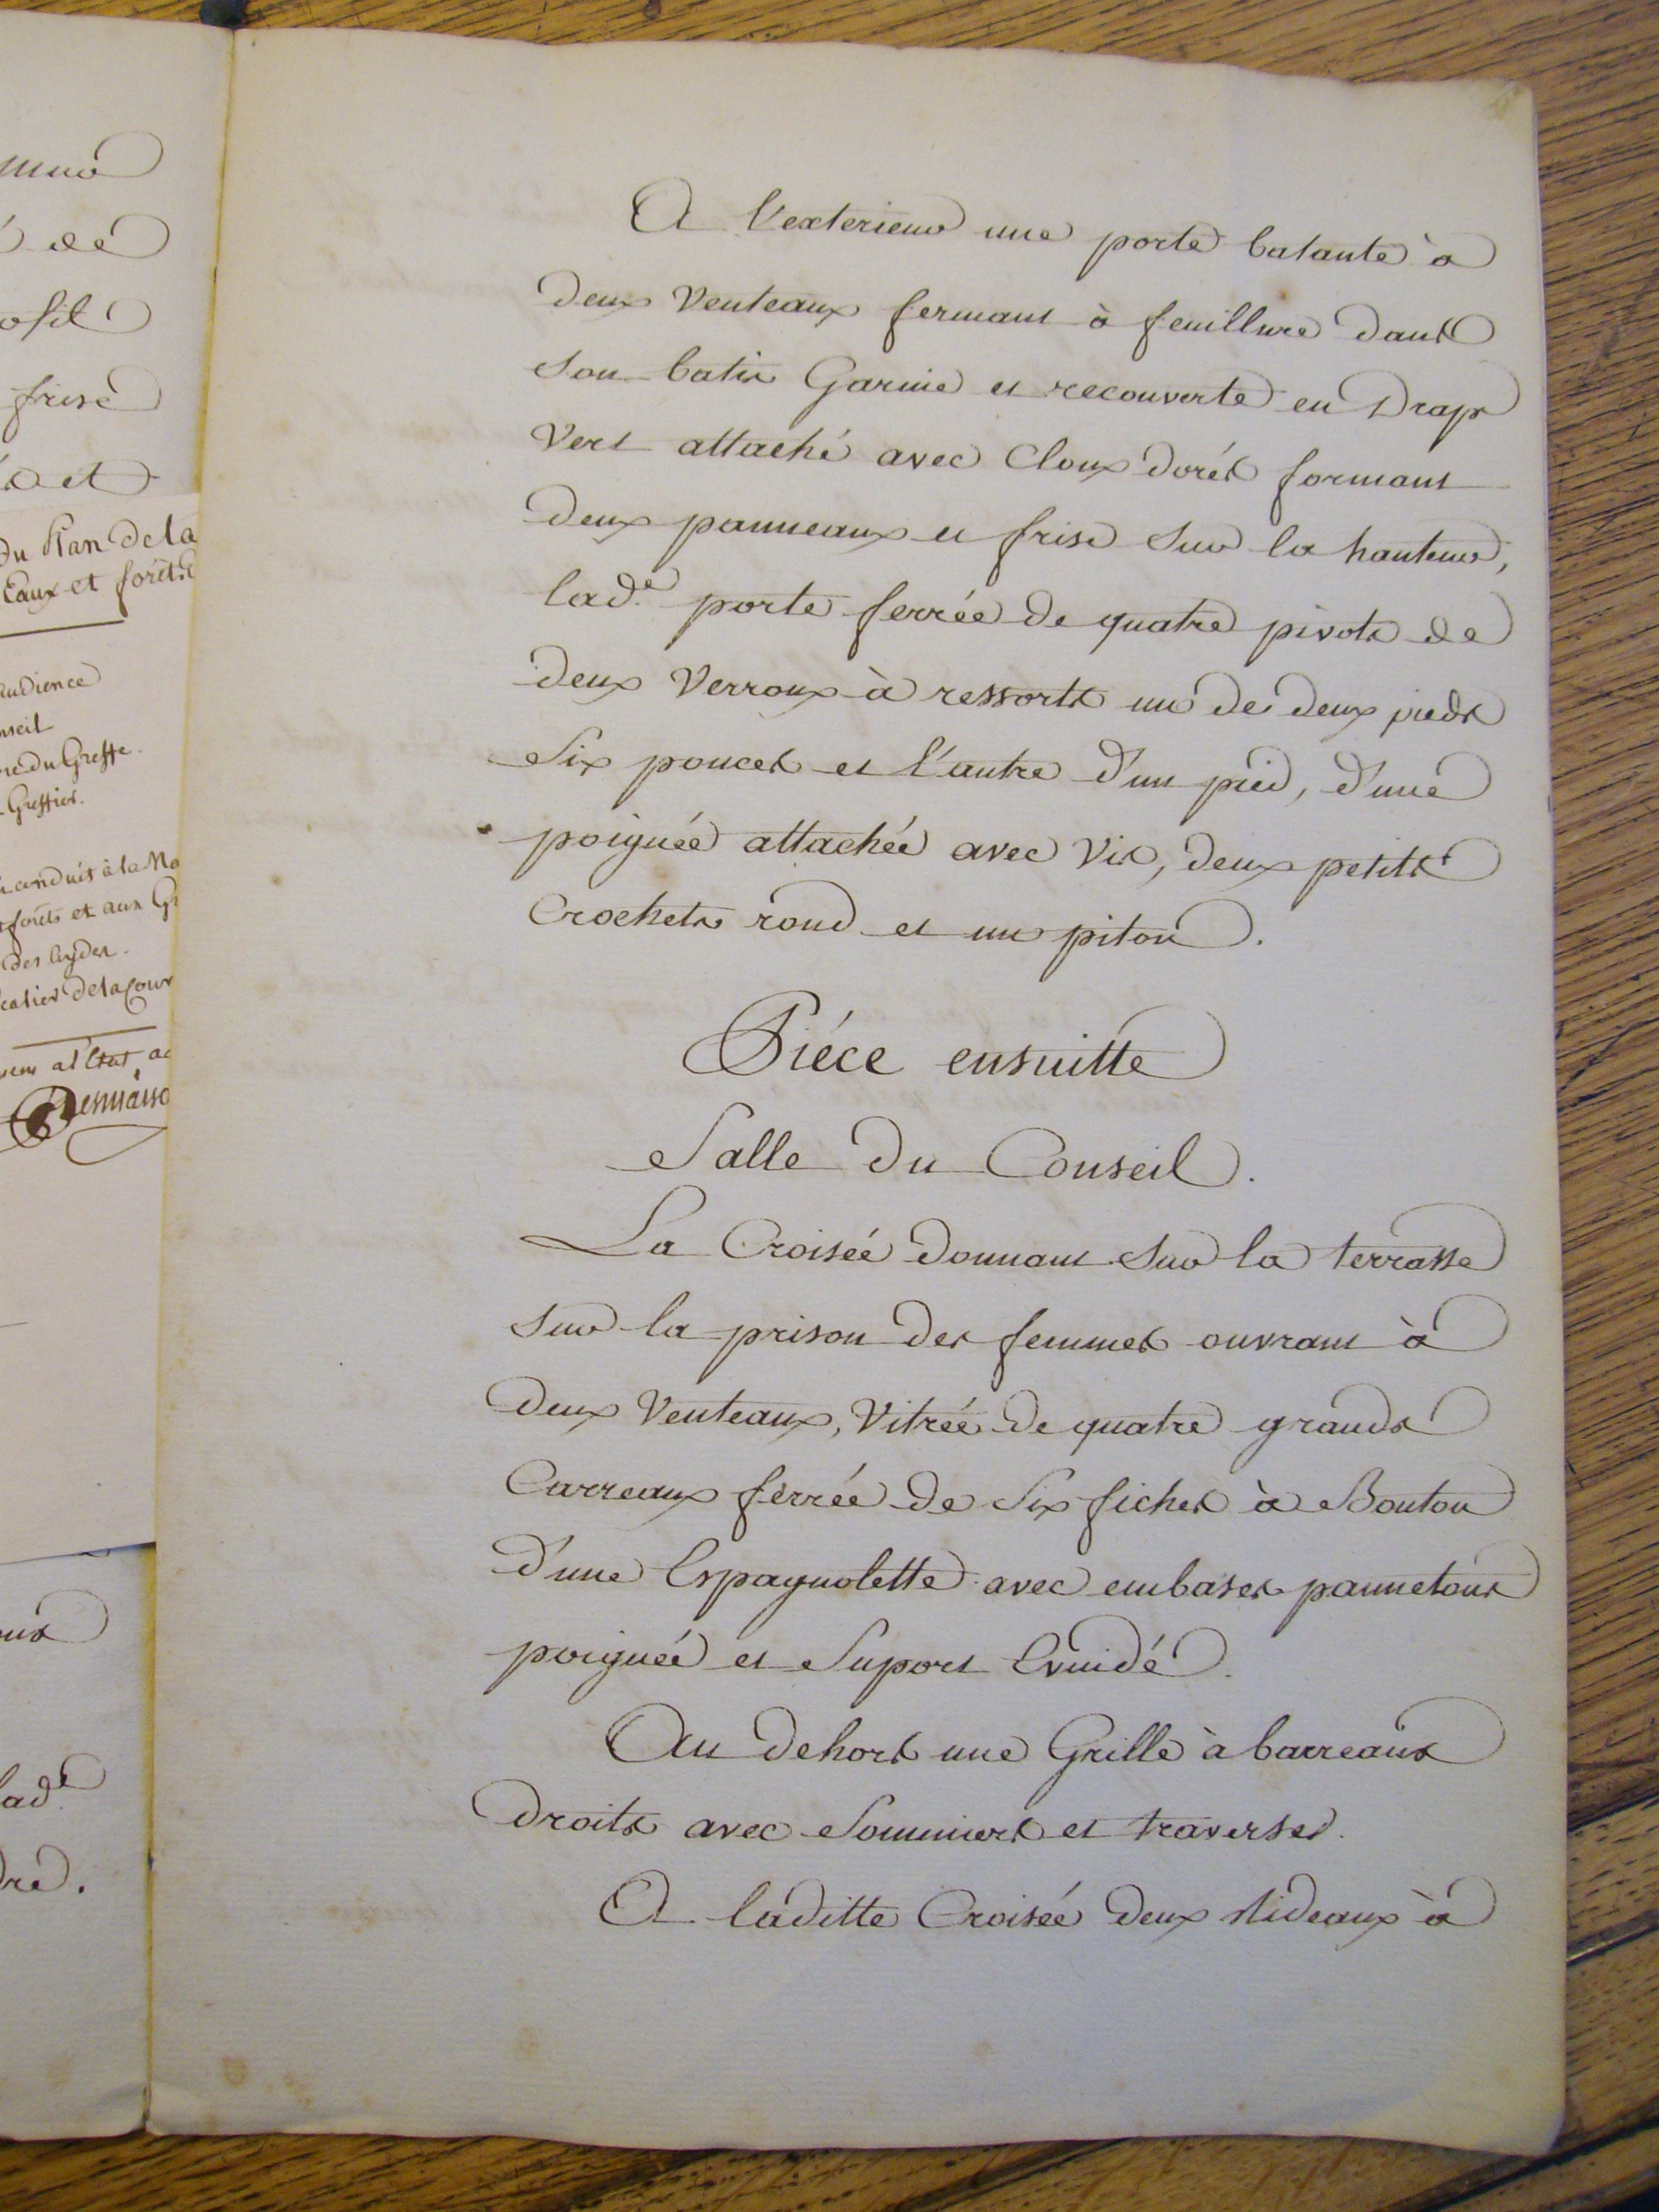 de
frise
et
Du Plan de la
Eaux et forêts
audience
du Greffe.
Greffier.
conduit à la Ma
forêts et aux
des aydes.
de la Cour
a l'Etat
lad.e
A l'exterieur une porte batante à
deux Venteaux fermant à feuillure dans
Son batis Garnie et recouverte en Drap
Vert attaché avec Cloux dorés formant
deux panneaux et frise Sur la hauteur,
lad.e porte ferrée de quatre pivots de
deux Verroux à ressorts un de deux pieds
Six pouces et l'autre d'un pied, d'une
poignée attachée avec Vis, deux petits
Crochets rond et un piton.
Piéce ensuitte
Salle du Conseil.
La Croisée donnant Sur la terrasse
Sur la prison des femmes ouvrant à
deux Venteaux, Vitrée de quatre grands
Carreaux ferrée de Six fiches à Bouton
d'une Espagnolette avec embases pannetons
poignée et Suport Evuidé.
Au dehors une Grille à barreaux
droits avec Sommiers et traverses.
A laditte Croisée deux Rideaux à